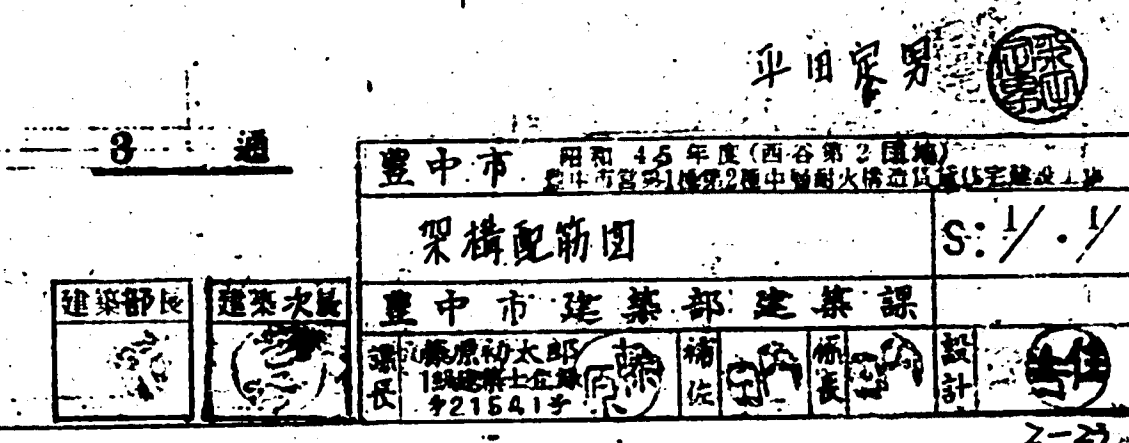 平田定男
3 通
豊中市 昭和45年度(西谷第2団地)
豊中市営第1種第2種中層耐火構造住宅建設工事
架構配筋図 S:1/ ・ 1/
建築部長 建築次長 豊中市建築部建築課
課長 藤原初太郎 補佐 係長 設計
1級建築士登録
第21541号
2-23